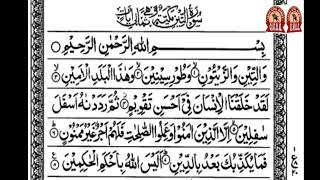 سُوْرَةُ التِّيْنِ مَكِّيَّةٌ وَّهِيَ ثَمَانِيْ اٰيَاتٍ
بِسْمِ اللّٰهِ الرَّحْمٰنِ الرَّحِيْمِ
وَالتِّيْنِ وَالزَّيْتُوْنِ ۝ وَطُوْرِ سِيْنِيْنَ ۝ وَهٰذَا الْبَلَدِ الْاَمِيْنِ ۝
لَقَدْ خَلَقْنَا الْاِنْسَانَ فِيْٓ اَحْسَنِ تَقْوِيْمٍ ۝ ثُمَّ رَدَدْنٰهُ اَسْفَلَ
سٰفِلِيْنَ ۝ اِلَّا الَّذِيْنَ اٰمَنُوْا وَعَمِلُوا الصّٰلِحٰتِ فَلَهُمْ اَجْرٌ غَيْرُ مَمْنُوْنٍ ۝
فَمَا يُكَذِّبُكَ بَعْدُ بِالدِّيْنِ ۝ اَلَيْسَ اللّٰهُ بِاَحْكَمِ الْحٰكِمِيْنَ ۝